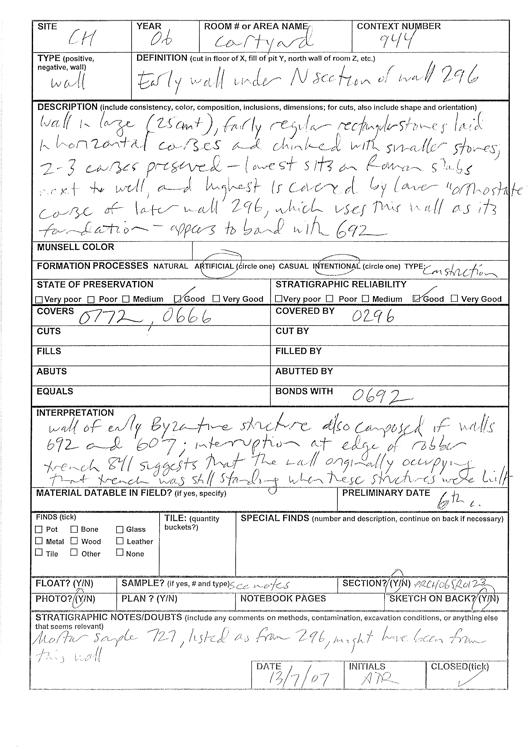 SITE CH YEAR 06 ROOM # or AREA NAME Cortyard CONTEXT NUMBER 944
TYPE (positive, negative, wall) wall DEFINITION (cut in floor of X, fill of pit Y, north wall of room Z, etc.) Early wall under N section of wall 296
DESCRIPTION (include consistency, color, composition, inclusions, dimensions; for cuts, also include shape and orientation)
Wall in large (25cm+), fairly regular rectangular stones laid
in horizontal courses and chinked with smaller stones;
2-3 courses preserved – lowest sits on Roman slabs
next to well, and highest is covered by lower "orthostate
course of later wall 296, which uses this wall as its
foundation – appears to bond with 692
MUNSELL COLOR
FORMATION PROCESSES NATURAL ARTIFICIAL (circle one) CASUAL INTENTIONAL (circle one) TYPE: Construction
STATE OF PRESERVATION STRATIGRAPHIC RELIABILITY
Very poor Poor Medium Good Very Good Very poor Poor Medium Good Very Good
COVERS 0772, 0666 COVERED BY 0296
CUTS CUT BY
FILLS FILLED BY
ABUTS ABUTTED BY
EQUALS BONDS WITH 0692
INTERPRETATION
wall of early Byzantine structure also composed of walls
692 and 607; interruption at edge of robber
trench 841 suggests that the wall originally occupying
that trench was still standing when these structures were built
MATERIAL DATABLE IN FIELD? (if yes, specify) PRELIMINARY DATE 6th c.
FINDS (tick) TILE: (quantity buckets?) SPECIAL FINDS (number and description, continue on back if necessary)
Pot Bone Glass
Metal Wood Leather
Tile Other None
FLOAT? (Y/N) SAMPLE? (if yes, # and type) see notes SECTION? (Y/N) ARCH06SR0123
PHOTO? (Y/N) PLAN ? (Y/N) NOTEBOOK PAGES SKETCH ON BACK? (Y/N)
STRATIGRAPHIC NOTES/DOUBTS (include any comments on methods, contamination, excavation conditions, or anything else
that seems relevant)
Mortar sample 727, listed as from 296, might have been from
this wall
DATE 13/7/07 INITIALS ATR CLOSED(tick)